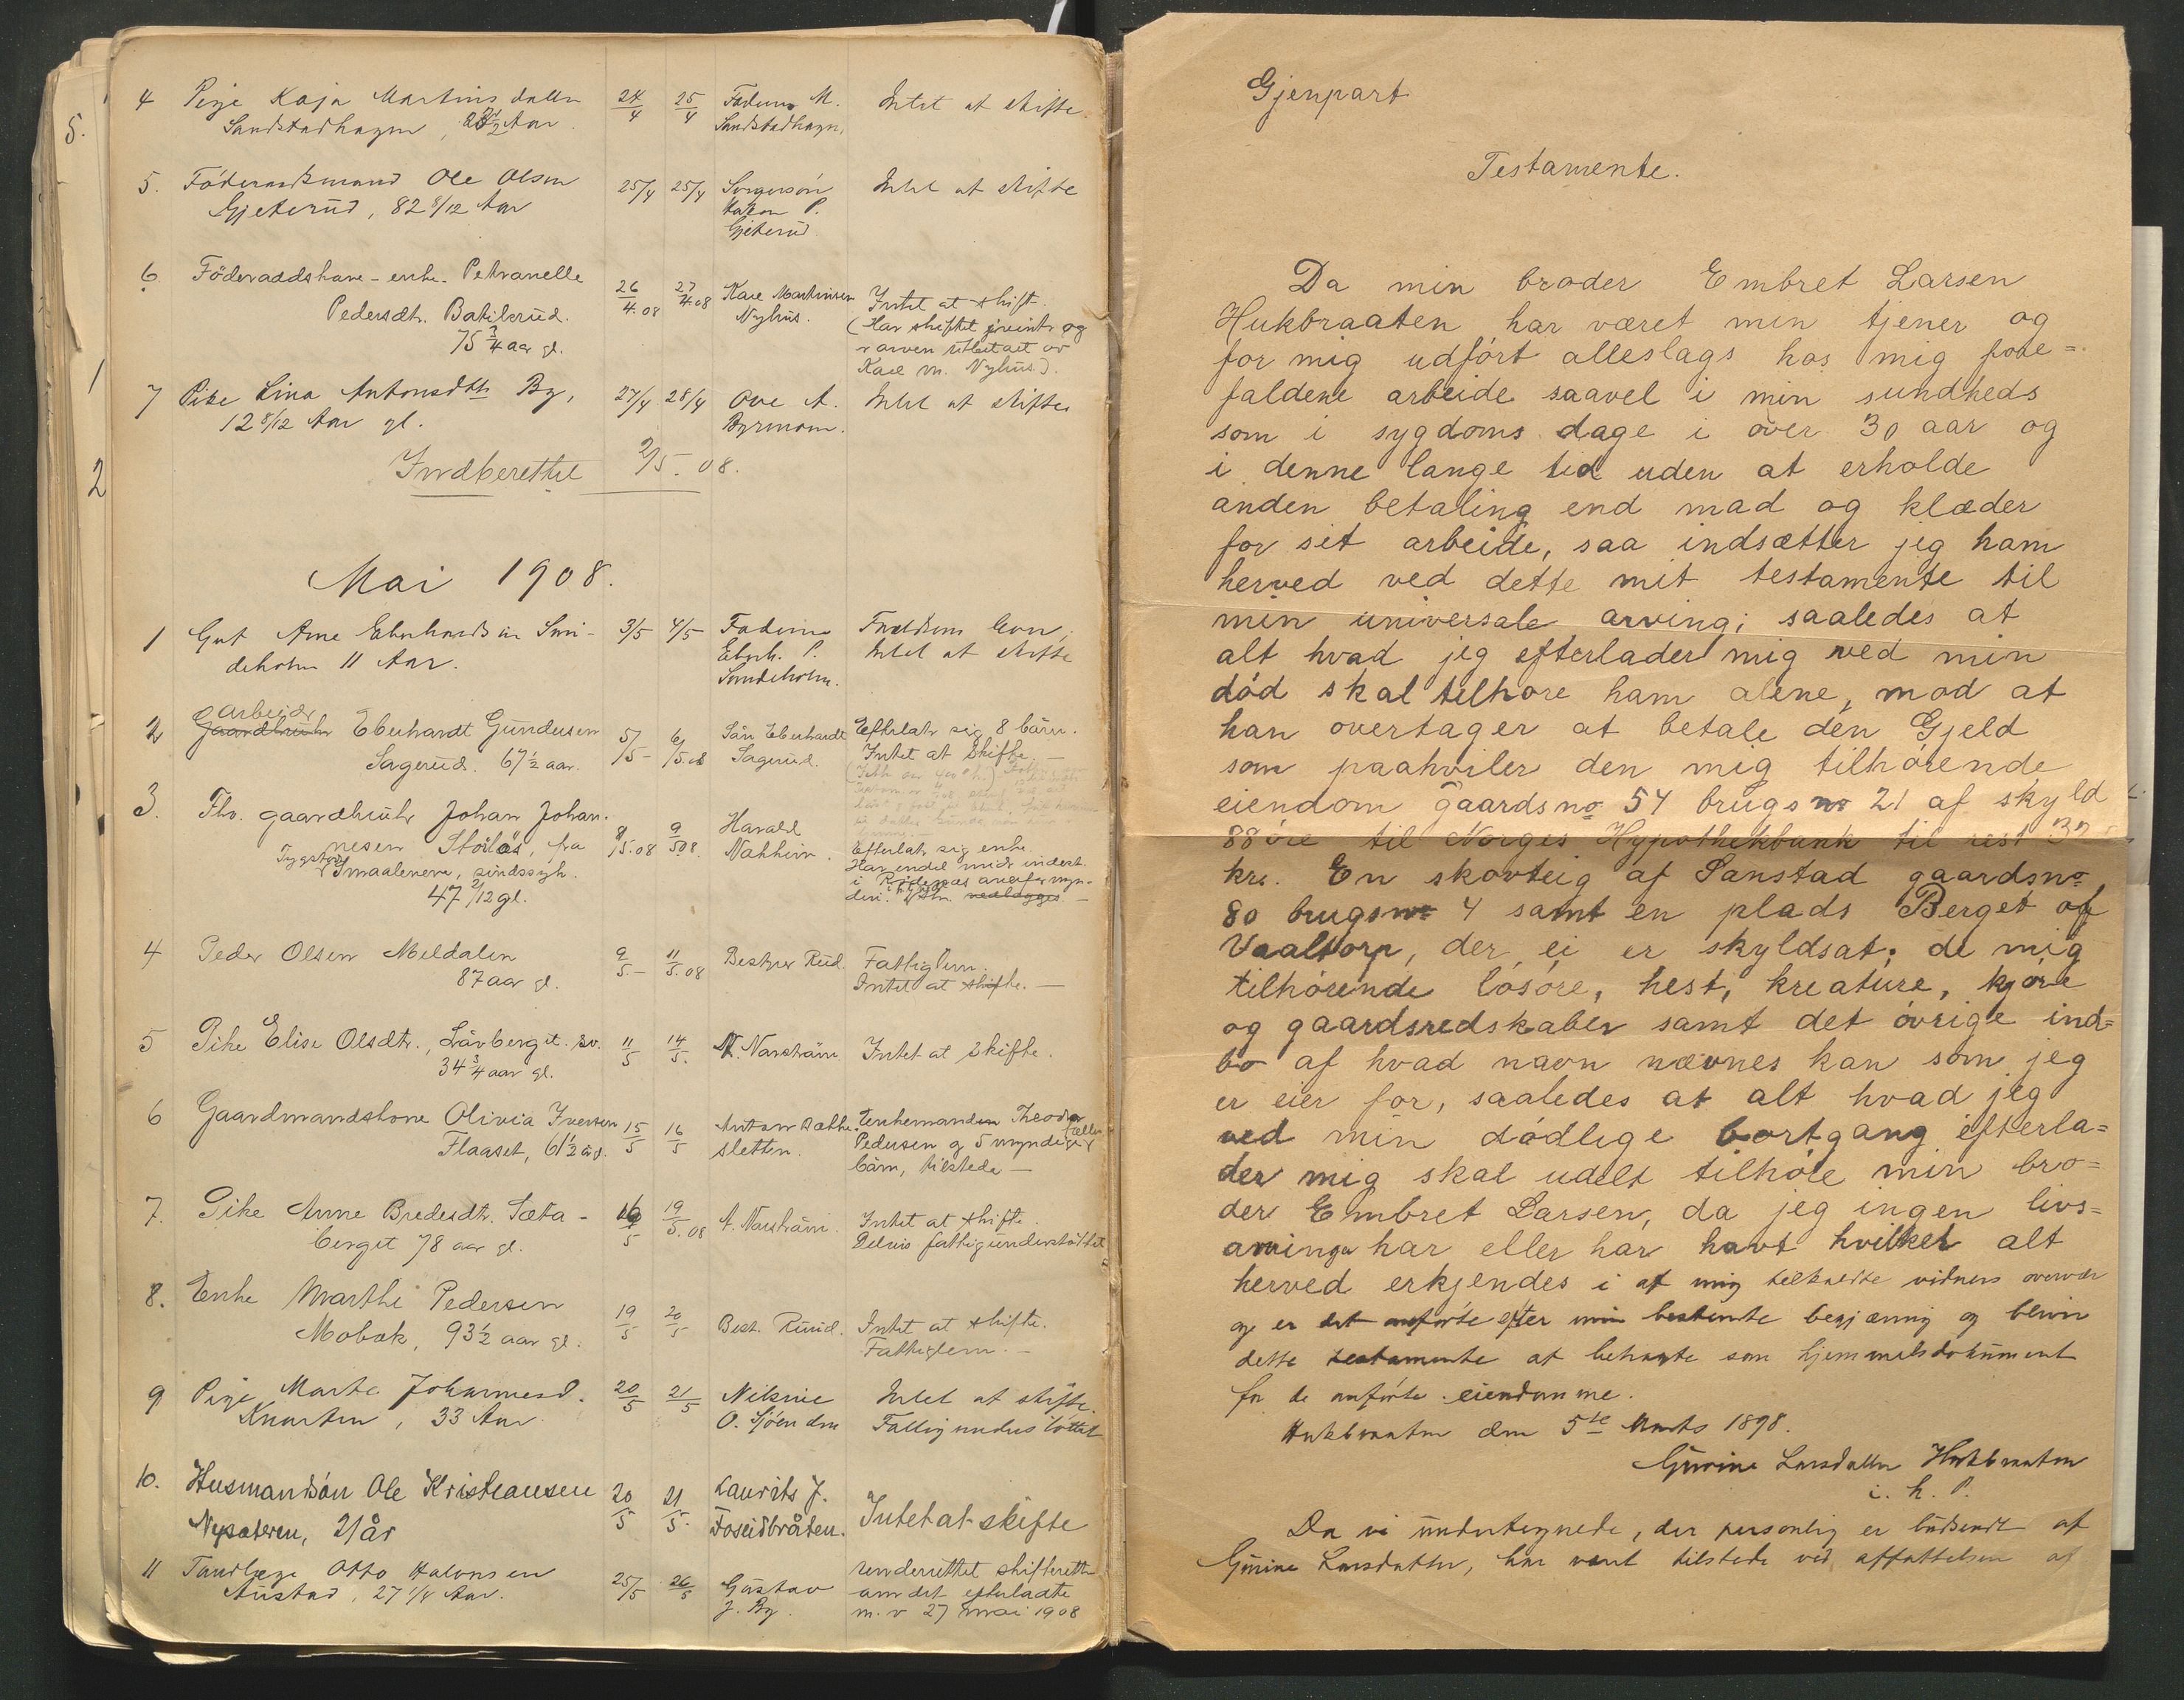 4 Pige Kaja Martinsdatter 24/4 25/4 Faderen M. Intet at skifte.
Sandstadhagen, Aar Sandstadhagen.
5. Föderaadsmand Ole Olsen 25/4 25/4 Svigersön Intet at skifte
Gjeterud, 82 8/12 Aar Hakon P.
Gjeterud
6. Föderaadshave-enke Petranelle 26/4.08 27/4.08 Karl Martinsen Intet at skifte.
Pedersdtr. Batilsrud. Nyhus. (Har skiftet og
75 3/4 aar gl. arven utbetalt av
Karl M. Nyhus.).
7 Pike Lina Antonsdtr By, 27/4 28/4 Ove A. Intet at skifte
12 8/12 Aar gl. Byrmoen.
Indberettet 2/5.08.
Mai 1908.
1 Gut Arne Eberhardsen Sun- 3/5 4/5 Faderen Forældrene lever.
deholm 11 Aar. Eberh. P. Intet at skifte
Sundeholm.
arbeider
2 Gaardbruker Eberhardt Gundersen 5/5- 6/5.08 Sön Eberhardt Efterlater sig 8 börn.
Sagerud. 67 1/2 aar. Sagerud. Intet at skifte. —
3. Fhv. gaardbruker Johan Johan-
nesen Stölås, fra 8/5.08 9/5.08 Harald Efterlater sig enke.
Smaalenene, sindssyk. Nahheim. Har endel midler indest.
47 2/12 gl. i Rödenæs overformyn-
deri. nedlægges. —
4 Peder Olsen Meldalen 9/5- 11/5.08 Bestyrer Rud. Fattiglem.
87 aar gl. Intet at skifte. —
5 Pike Elise Olsdtr., Lövberget. 11/5 14/5. N. Narström. Intet at skifte.
34 3/4 aar gl.
6 Gaardmandskone Olivia Iversen 15/5 16/5 Anton Sæthe- Enkemanden Theodor
Flaaset, 61 1/2 år. sletten. Pedersen og 5 myndige
börn, tilstede —
7. Pike Anne Bredesdtr. Sæta- 16/5 19/5.08 N. Narström. Intet at skifte.
berget 78 aar gl. Delvis fattigunderstöttet
8. Enke Marthe Pedersen 19/5 20/5 Best. Ruud. Intet at skifte.
Mobæk, 93 1/2 aar gl. Fattiglem. —
9 Pige Marte Johannesd. 20/5 21/5 Nikoline Intet at skifte.
Knarten, 33 Aar O. Sjöenden Fattigunderstöttet
10. Husmandsön Ole Kristiansen 20/5 21/5. Laurits J. Intet at skifte
Nysæteren, 21 år Foseidbråten.
11 Tandlæge Otto Halvorsen 25/5 26/5 Gustav underrettet skifteretten
Austad, 27 1/8 Aar. J. By. om det efterladte
m. v 27 mai 1908
5.
1
2
Gjenpart
Testamente.
Da min broder Embret Larsen
Hukbraaten har været min tjener og
for mig udfórt alleslags hos mig fore=
faldene arbeide saavel i min sundheds
som i sygdoms dage i over 30 aar og
i denne lange tid uden at erholde
anden betaling end mad og klæder
for sit arbeide, saa indsætter jeg ham
herved ved dette mit testamente til
min universale arving; saaledes at
alt hvad jeg efterlader mig ved min
dód skal tilhøre ham alene, mod at
han overtager at betale den Gjeld
som paahviler den mig tilhórende
eiendom gaardsno 54 brugsno 21 af skyld
88 öre til Norges Hypothekbank til rest
kr. En skovteig af Sanstad gaardsno
80 brugsno 4 samt en plads Berget af
Vaaltorp, der ei er skyldsat; de mig
tilhórende lósóre, hest, kreature, kjøre
og gaardsredskaber samt det óvrige ind=
bo af hvad navn nævnes kan som jeg
er eier for, saaledes at alt hvad jeg
ved min dódlige bortgang efterla=
der mig skal udelt tilhóre min bro=
der Embret Larsen, da jeg ingen livs=
arvinger har eller har havt hvilket alt
herved erkjendes i af mig tilkaldte vidners overvær
og er det anförte efter min bestemte begjæring og bliver
dette testamente at betragte som hjemmelsdokument
for de anförte eiendomme.
Hukbraaten den 5te Marts 1898.
Gurine Larsdatter Hukbraaten
i. h. P.
Da vi undertegnede, der personlig er bekjendt af
Gurine Larsdatter, har været tilstede ved affattelsen af